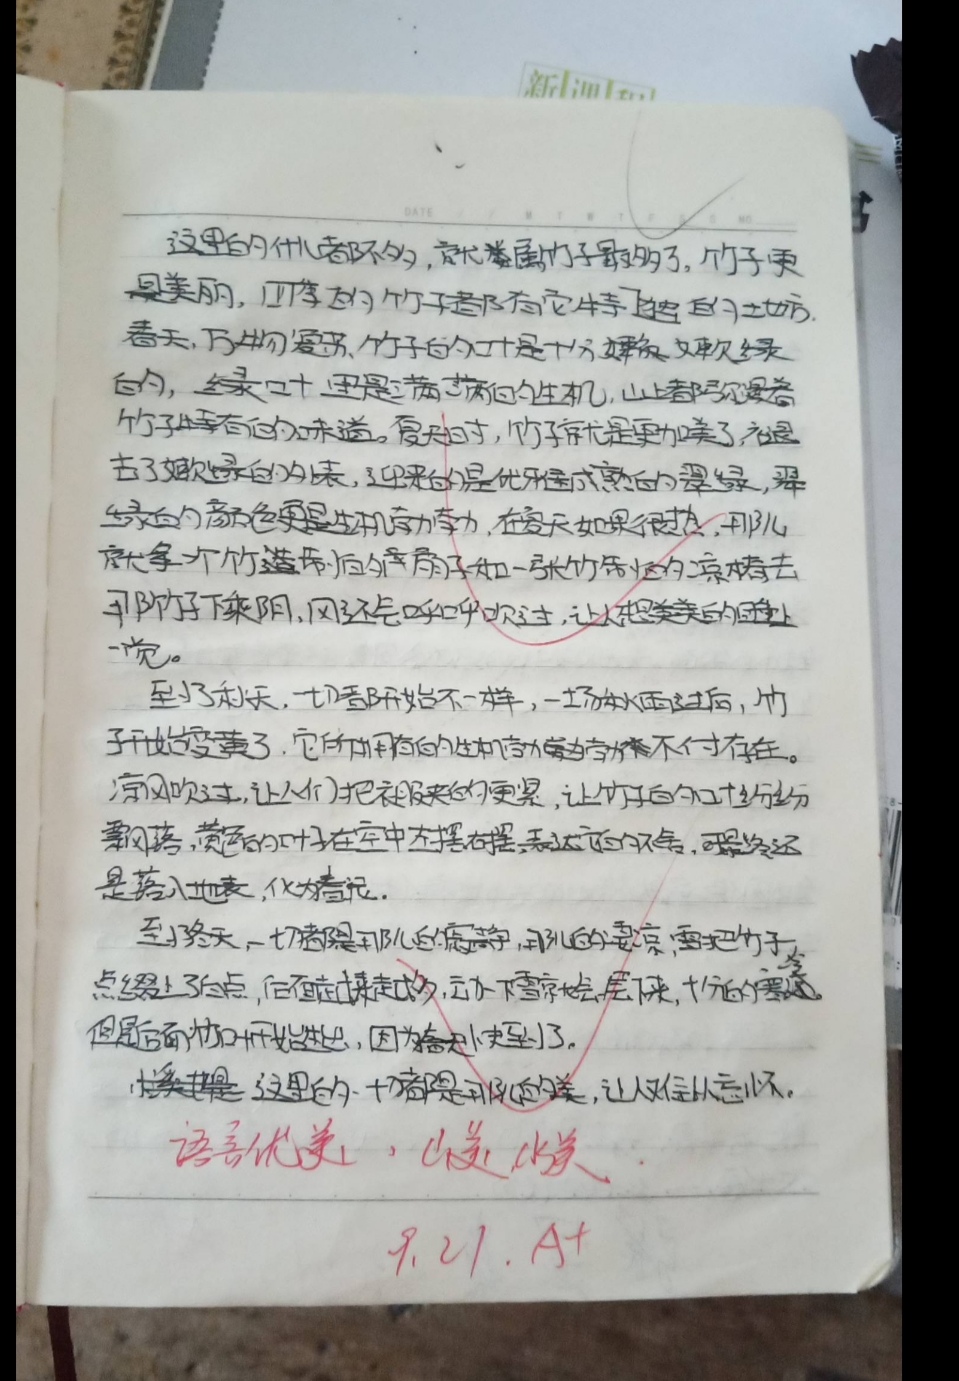 新课程
DATE / / M T W T F S S NO
这里的什么都不多，就属竹子最多了，竹子更
是美丽，四季的竹子都有它特别的地方.
春天，万物复苏、竹子的叶是十分嫩绿
的，绿叶里是满满的生机，山上都弥漫着
竹子特有的味道。夏天时，竹子就是更加美了，褪
去了嫩绿的外表，迎来的是优雅成熟的翠绿，翠
绿的颜色更是生机勃勃，在夏天如果很热，那儿
就拿一个竹造制的扇子和一张竹制的凉椅去
那竹子下乘阴，风还会呼呼吹过，让人想美美的睡上
一觉。
到了秋天，一切都开始不一样，一场秋雨过后，竹
子开始变黄了，它所拥有的生机勃勃不付存在。
凉风吹过，让人们把衣服夹的更紧，让竹子的叶纷纷
飘落，黄色的叶子在空中左摆右摆，表达它的不舍，可最终还
是落入地表，化为春泥.
到了冬天，一切都是那儿的寂静，那儿的凄凉，雪把竹子
点缀上了白点，后面越来越多，动一下雪就会落下来，十分的寒冷.
但是后面竹叶开始进出，因为春天快到了.
这里的一切都是那儿的美，让人难以忘怀.
语言优美，山美，水美.
9.21. A+